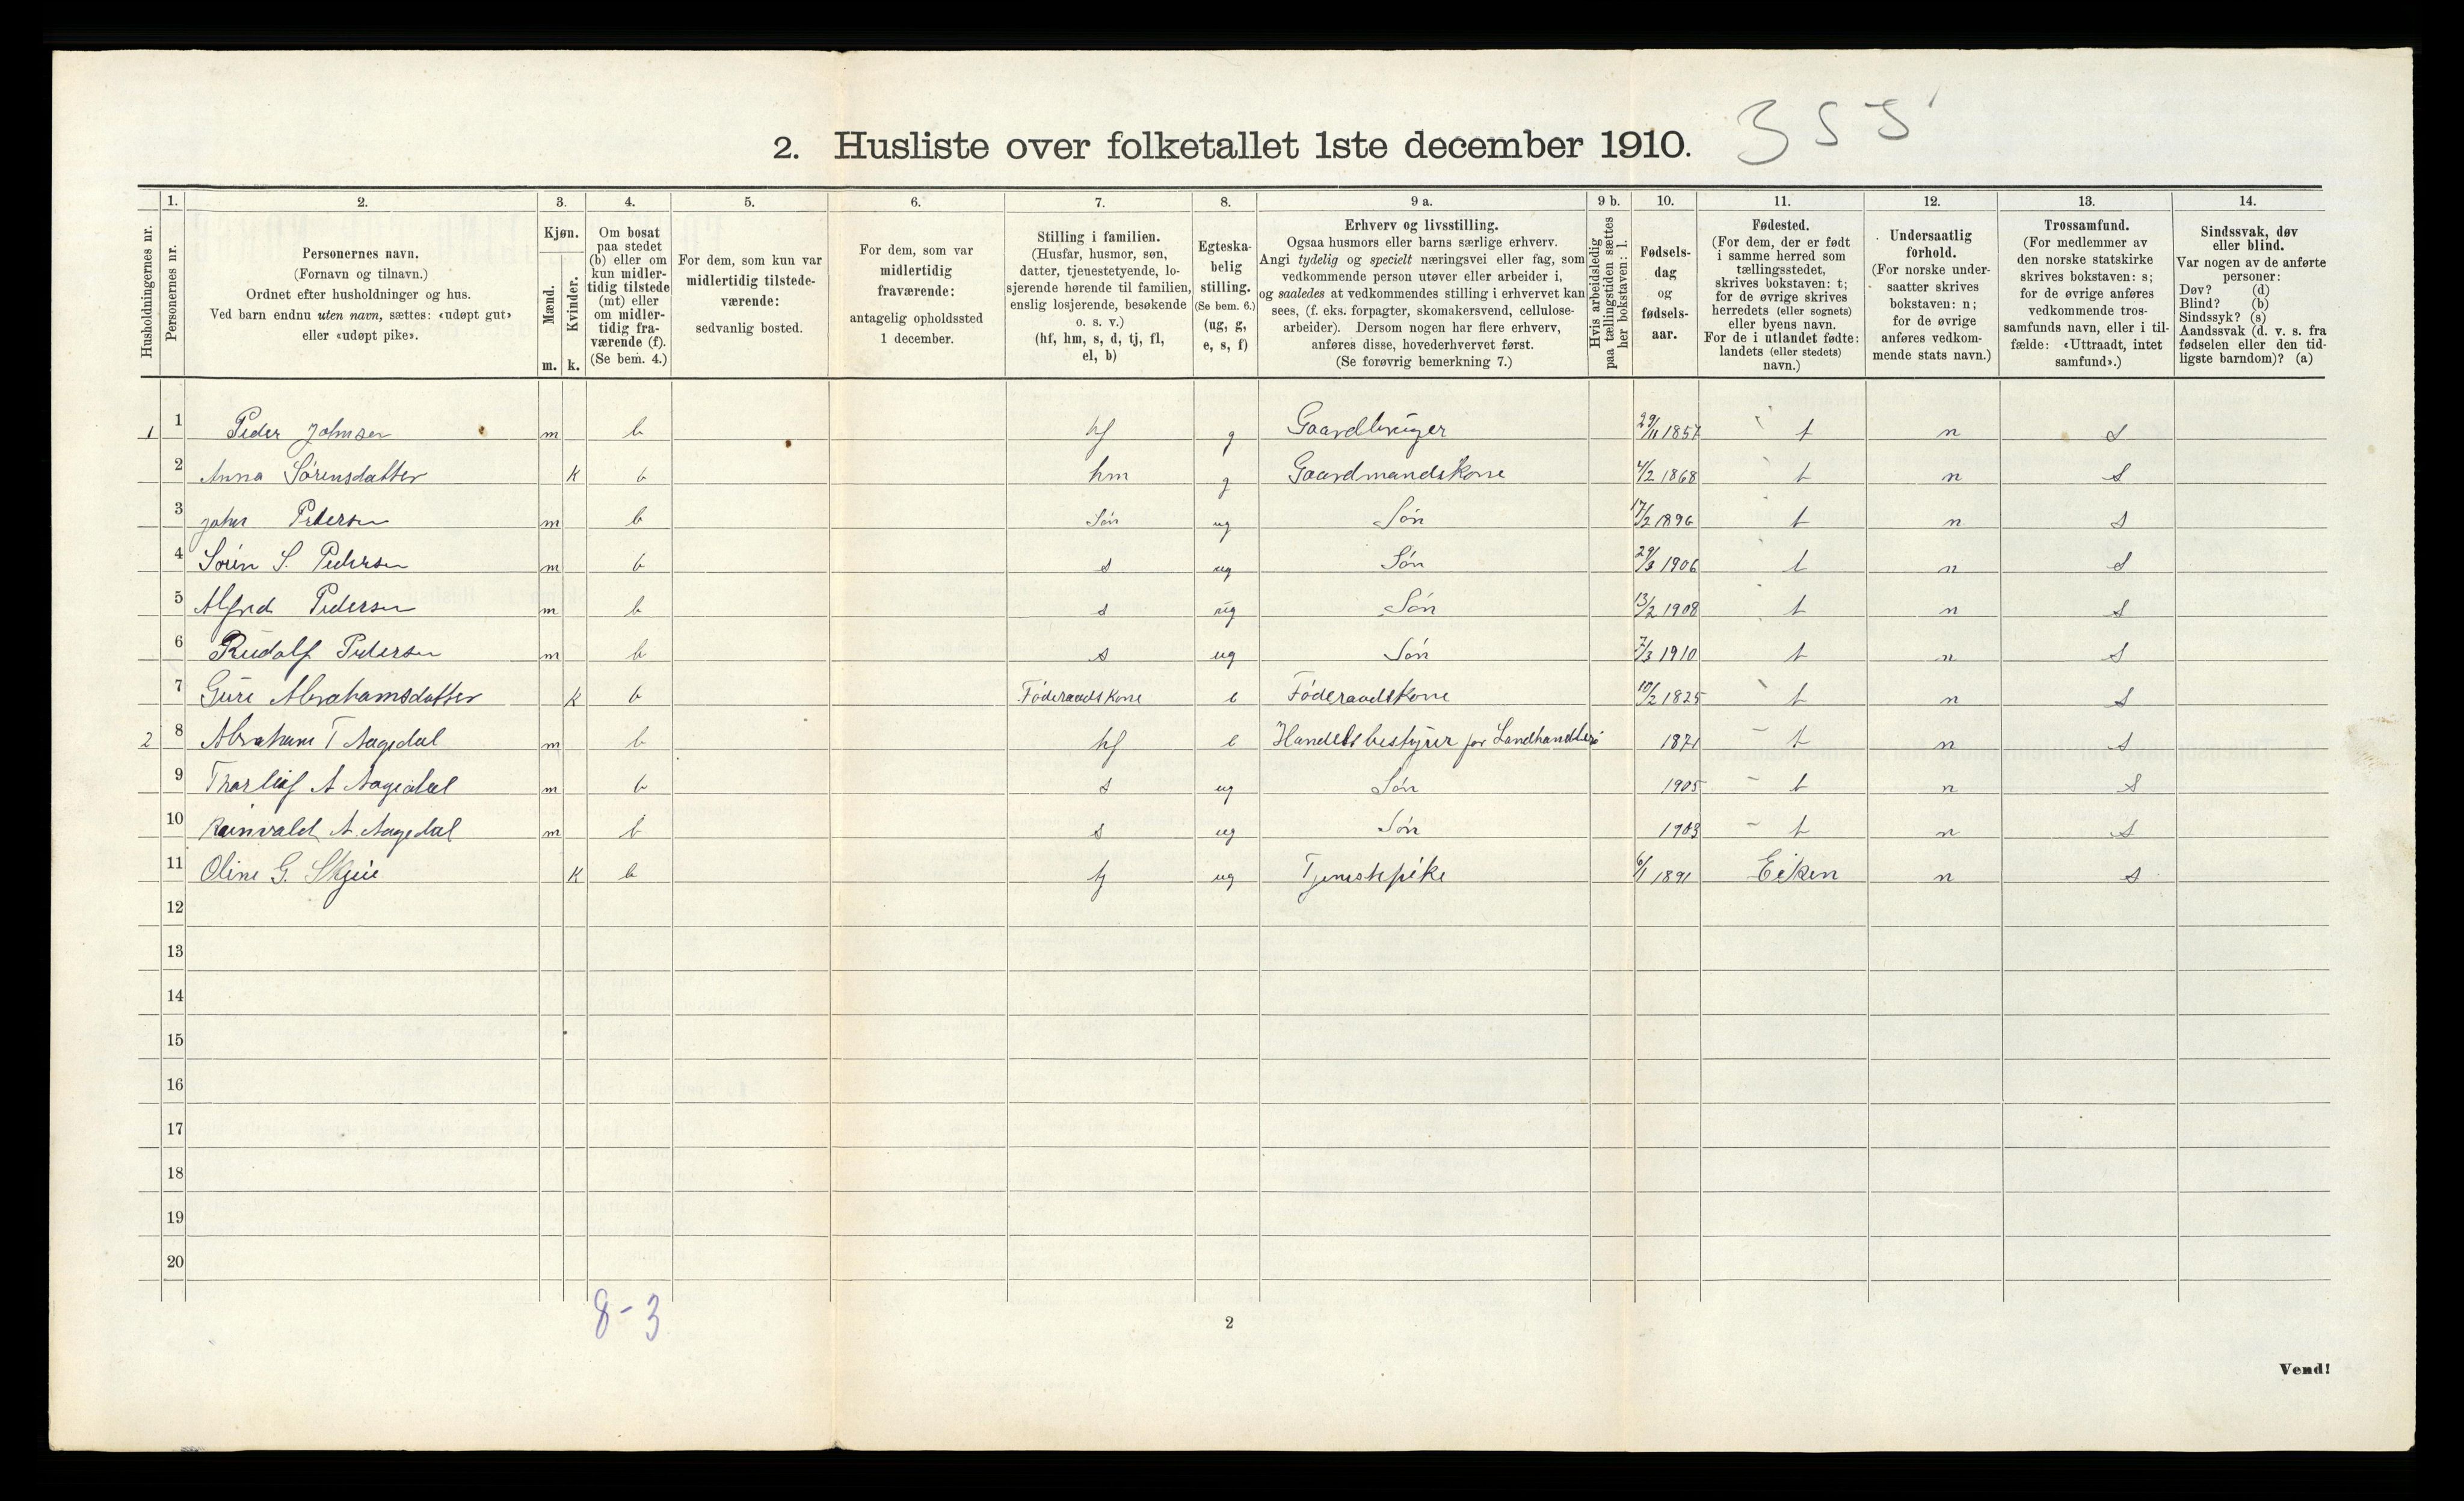 2. Husliste over folketallet 1ste december 1910. 355
Husholdningernes nr.
1. Personernes nr.
2. Personernes navn.
(Fornavn og tilnavn.)
Ordnet efter husholdninger og hus.
Ved barn endnu uten navn, sættes: «udøpt gut»
eller «udøpt pike».
3. Kjøn.
Mænd. m.
Kvinder. k.
4. Om bosat
paa stedet
(b) eller om
kun midler-
tidig tilstede
(mt) eller
om midler-
tidig fra-
værende (f).
(Se bem. 4.)
5. For dem, som kun var
midlertidig tilstede-
værende:
sedvanlig bosted.
6. For dem, som var
midlertidig
fraværende:
antagelig opholdssted
1 december.
7. Stilling i familien.
(Husfar, husmor, søn,
datter, tjenestetyende, lo-
sjerende hørende til familien,
enslig losjerende, besøkende
o. s. v.)
(hf, hm, s, d, tj, fl,
el, b)
8. Egteska-
belig
stilling.
(Se bem. 6.)
(ug, g,
e, s, f)
9 a. Erhverv og livsstilling.
Ogsaa husmors eller barns særlige erhverv.
Angi tydelig og specielt næringsvei eller fag, som
vedkommende person utøver eller arbeider i,
og saaledes at vedkommendes stilling i erhvervet kan
sees, (f. eks. forpagter, skomakersvend, cellulose-
arbeider). Dersom nogen har flere erhverv,
anføres disse, hovederhvervet først.
(Se forøvrig bemerkning 7.)
9 b. Hvis arbeidsledig
paa tællingstiden sættes
her bokstaven: l.
10. Fødsels-
dag
og
fødsels-
aar.
11. Fødested.
(For dem, der er født
i samme herred som
tællingsstedet,
skrives bokstaven: t;
for de øvrige skrives
herredets (eller sognets)
eller byens navn.
For de i utlandet fødte:
landets (eller stedets)
navn.)
12. Undersaatlig
forhold.
(For norske under-
saatter skrives
bokstaven: n;
for de øvrige
anføres vedkom-
mende stats navn.)
13. Trossamfund.
(For medlemmer av
den norske statskirke
skrives bokstaven: s;
for de øvrige anføres
vedkommende tros-
samfunds navn, eller i til-
fælde: «Uttraadt, intet
samfund».)
14. Sindssvak, døv
eller blind.
Var nogen av de anførte
personer:
Døv? (d)
Blind? (b)
Sindssyk? (s)
Aandssvak (d. v. s. fra
fødselen eller den tid-
ligste barndom)? (a)
1 1 Peder Johnsen m b hf g Gaardbruger 29/11 1857 t n s
2 Anna Sørensdatter k b hm g Gaardmandskone 4/2 1868 t n s
3 John Pedersen m b Søn ug Søn 17/2 1896 t n s
4 Søren S. Pedersen m b s ug Søn 29/3 1906 t n s
5 Alfred Pedersen m b s ug Søn 13/2 1908 t n s
6 Rudolf Pedersen m b s ug Søn 7/3 1910 t n s
7 Guri Abrahamsdatter k b Føderaadskone e Føderaadskone 10/2 1825 t n s
2 8 Abraham T Aagedal m b hf e Handelsbestyrer for Landhandleri 1871 t n s
9 Thorleif A Aagedal m b s ug Søn 1905 t n s
10 Reinvald A. Aagedal m b s ug Søn 1903 t n s
11 Oline G. Skjeie k b tj ug Tjenestepike 6/1 1891 Eiken n s
12
13
14
15
16
17
18
19
20
8-3
2
Vend!